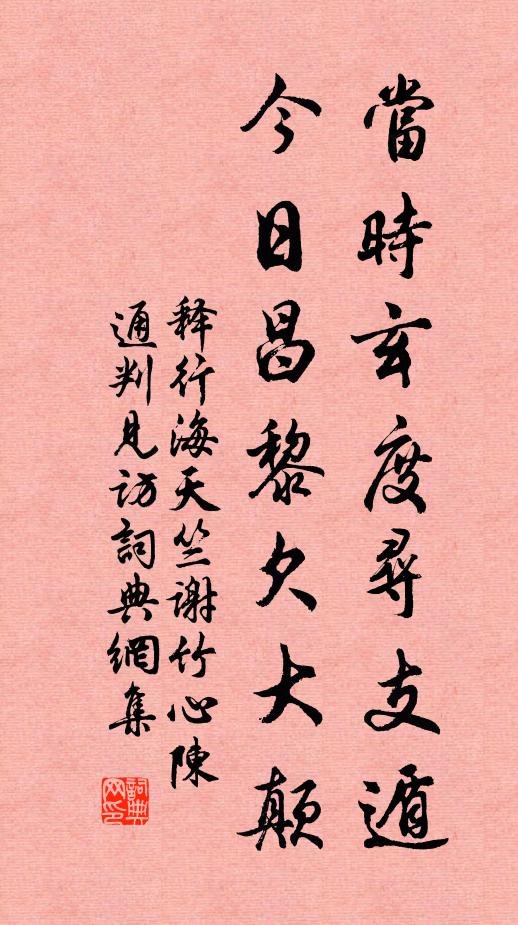 當時玄度尋支遁
今日昌黎欠大顛
释行海天竺谢竹心陳
通判見訪詞典網集
詞典网印